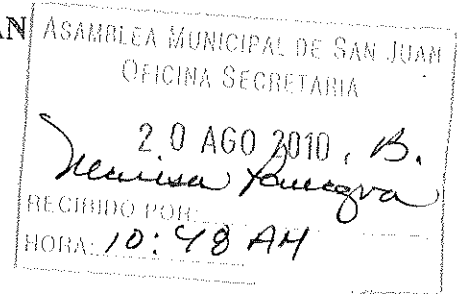 AN
ASAMBLEA MUNICIPAL DE SAN JUAN
OFICINA SECRETARIA
20 AGO 2010, B.
RECIBIDO POR:
HORA: 10:48 AM